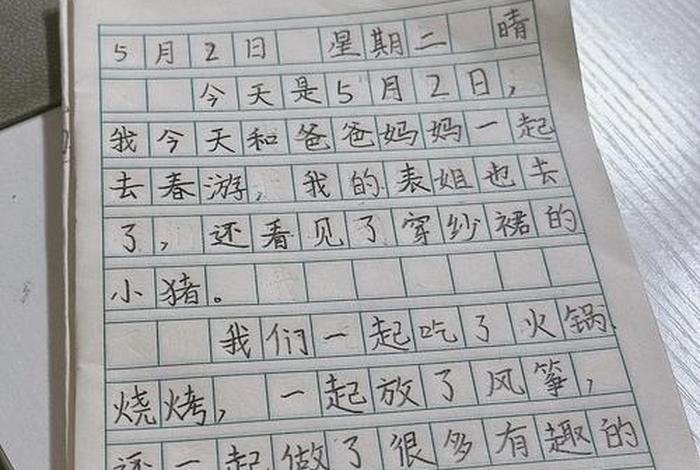 5月2日 星期二 晴
今天是5月2日，
我今天和爸爸妈妈一起
去春游，我的表姐也去
了，还看见了穿纱裙的
小猪。
我们一起吃了火锅
烧烤，一起放了风筝，
还一起做了很多有趣的